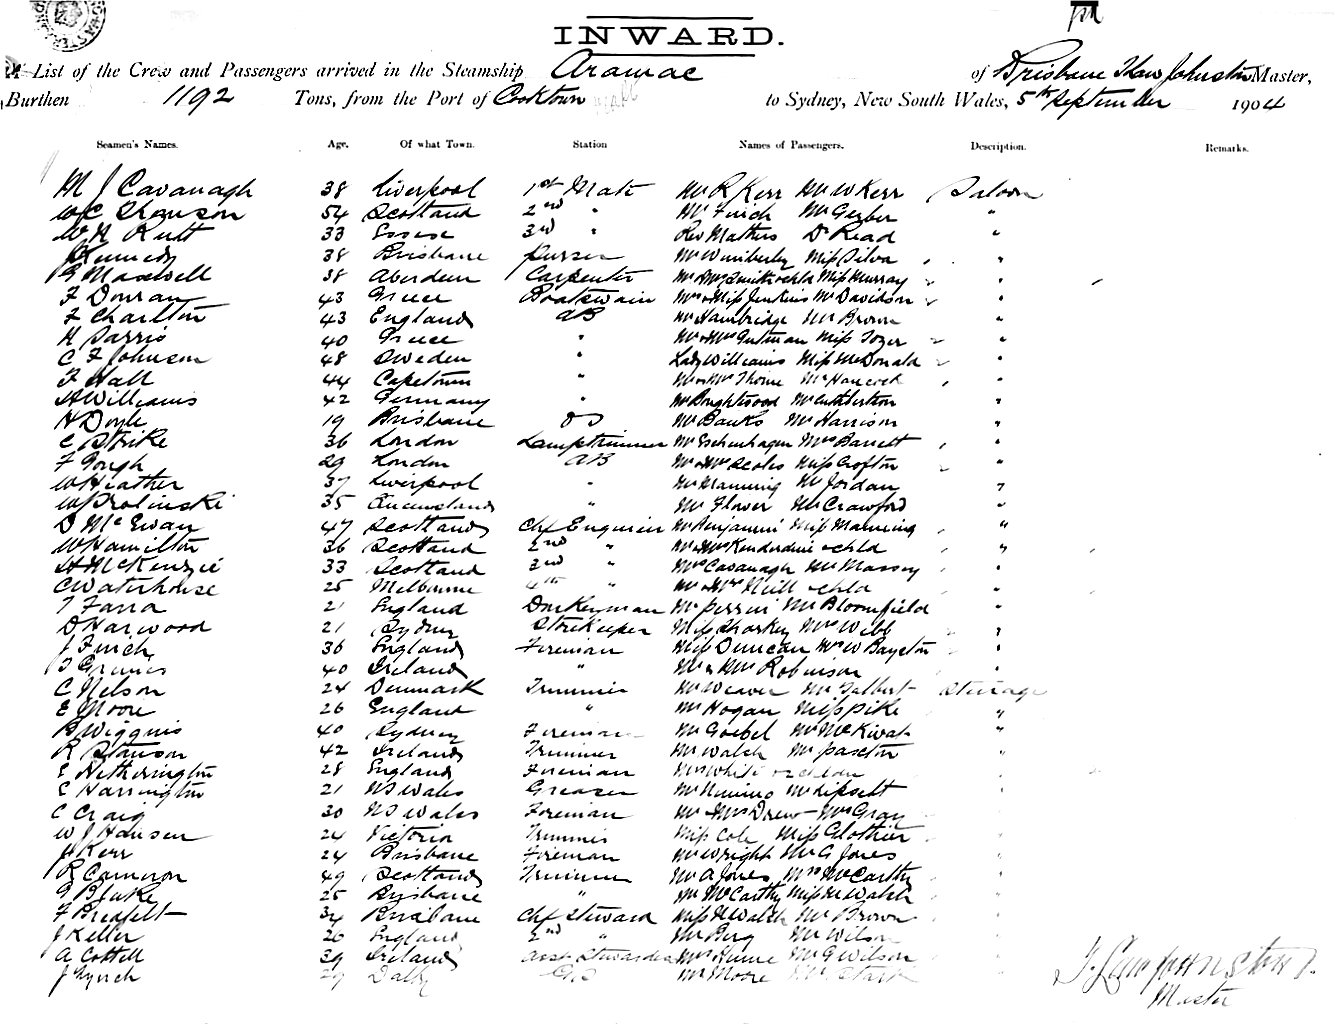 INWARD.
List of the Crew and Passengers arrived in the Steamship Aramac of Brisbane Master,
Burthen 1192 Tons, from the Port of Cooktown to Sydney, New South Wales, 5th September 1904
Seamen's Names. Age. Of what Town. Station Names of Passengers. Description. Remarks.
M J Cavanagh 38 Liverpool 1st Mate Mr R Kerr Mr W Kerr Saloon
54 Scotland 2nd " Mr Finch Mr Gerber "
33 Essex 3rd " Rev Mathers Dr Read "
Kennedy 38 Brisbane Purser Mr Wimberley Miss Silva "
Maxwell 38 Aberdeen Carpenter Mr & Mrs Smith & chld Miss Murray "
F Donran 43 Greece Boatswain Mrs & Miss Jenkins Mr Davidson "
F Charlton 43 England AB Mr Hambridge Mr Brown "
H Sarris 40 Greece " Mr & Mrs Gutman Miss Tozer "
C F Johnson 48 Sweden " Lady Williams Miss McDonald "
F Hall 44 Capetown " Mr & Mrs Thorne Mr Hancock "
H Williams 42 Germany " Mr Boughtwood Mr Cuthbertson "
H Doyle 19 Brisbane OS Mr Banks Mr Harrison "
C Strike 36 London Lamptrimmer Mr Eschenhagen Mrs Barrett "
F Gough 29 London AB Mr & Mrs Scoles Miss Crofton "
W Heather 37 Liverpool " Mr Manning Mr Jordan "
W Prolinski 35 Queensland " Mr Flower Mr Crawford "
D McEwan 47 Scotland Chf Engineer Mr Benjamin Miss Manning "
W Hamilton 36 Scotland 2nd " Mr & Mrs Kenderdine & chld "
H McKenzie 33 Scotland 3rd " Mrs Cavanagh Mr Massey "
C Waterhouse 25 Melbourne 4th " Mr & Mrs Neill & chld "
T Farra 21 England Donkeyman Mr Perrin Mr Bloomfield "
D Harwood 21 Sydney Storekeeper Miss Sharkey Mrs Webb "
J Finch 36 England Fireman Miss Duncan Mr W Bayston "
40 Ireland " Mr & Mrs Robinson
C Nelson 24 Denmark Trimmer Mr Weaver Mr Talbert Steerage
E Moore 26 England " Mr Hogan Miss Pike "
B Wiggins 40 Sydney Fireman Mr Goebel Mr McKivat "
R Stanson 42 Ireland Trimmer Mr Walsh Mr Paxton "
E Hetherington 28 England Fireman Mrs White & chldn "
C Harrington 21 NS Wales Greaser Mr Nimmo Mr Lipsett "
C Craig 30 NS Wales Fireman Mr & Mrs Drew Mrs Gray "
W J Hansen 24 Victoria Trimmer Miss Cole Miss Clothier "
J Kerr 24 Brisbane Fireman Mr Wright Mr G Jones "
R Cameron 49 Scotland Trimmer Mr A Jones Mrs McCarthy "
G Blake 25 Brisbane " Mr McCarthy Miss M Walsh "
F Bredfelt 34 Brisbane Chf Steward Miss H Walsh Mr Brown "
J Keller 26 England 2nd " Mr Berg Mr Wilson
A Cottell 39 Ireland Asst Stewardess Mrs Hume Mr G Wilson
J Lynch 29 Dalby Mr Moore Mr Stark
Master